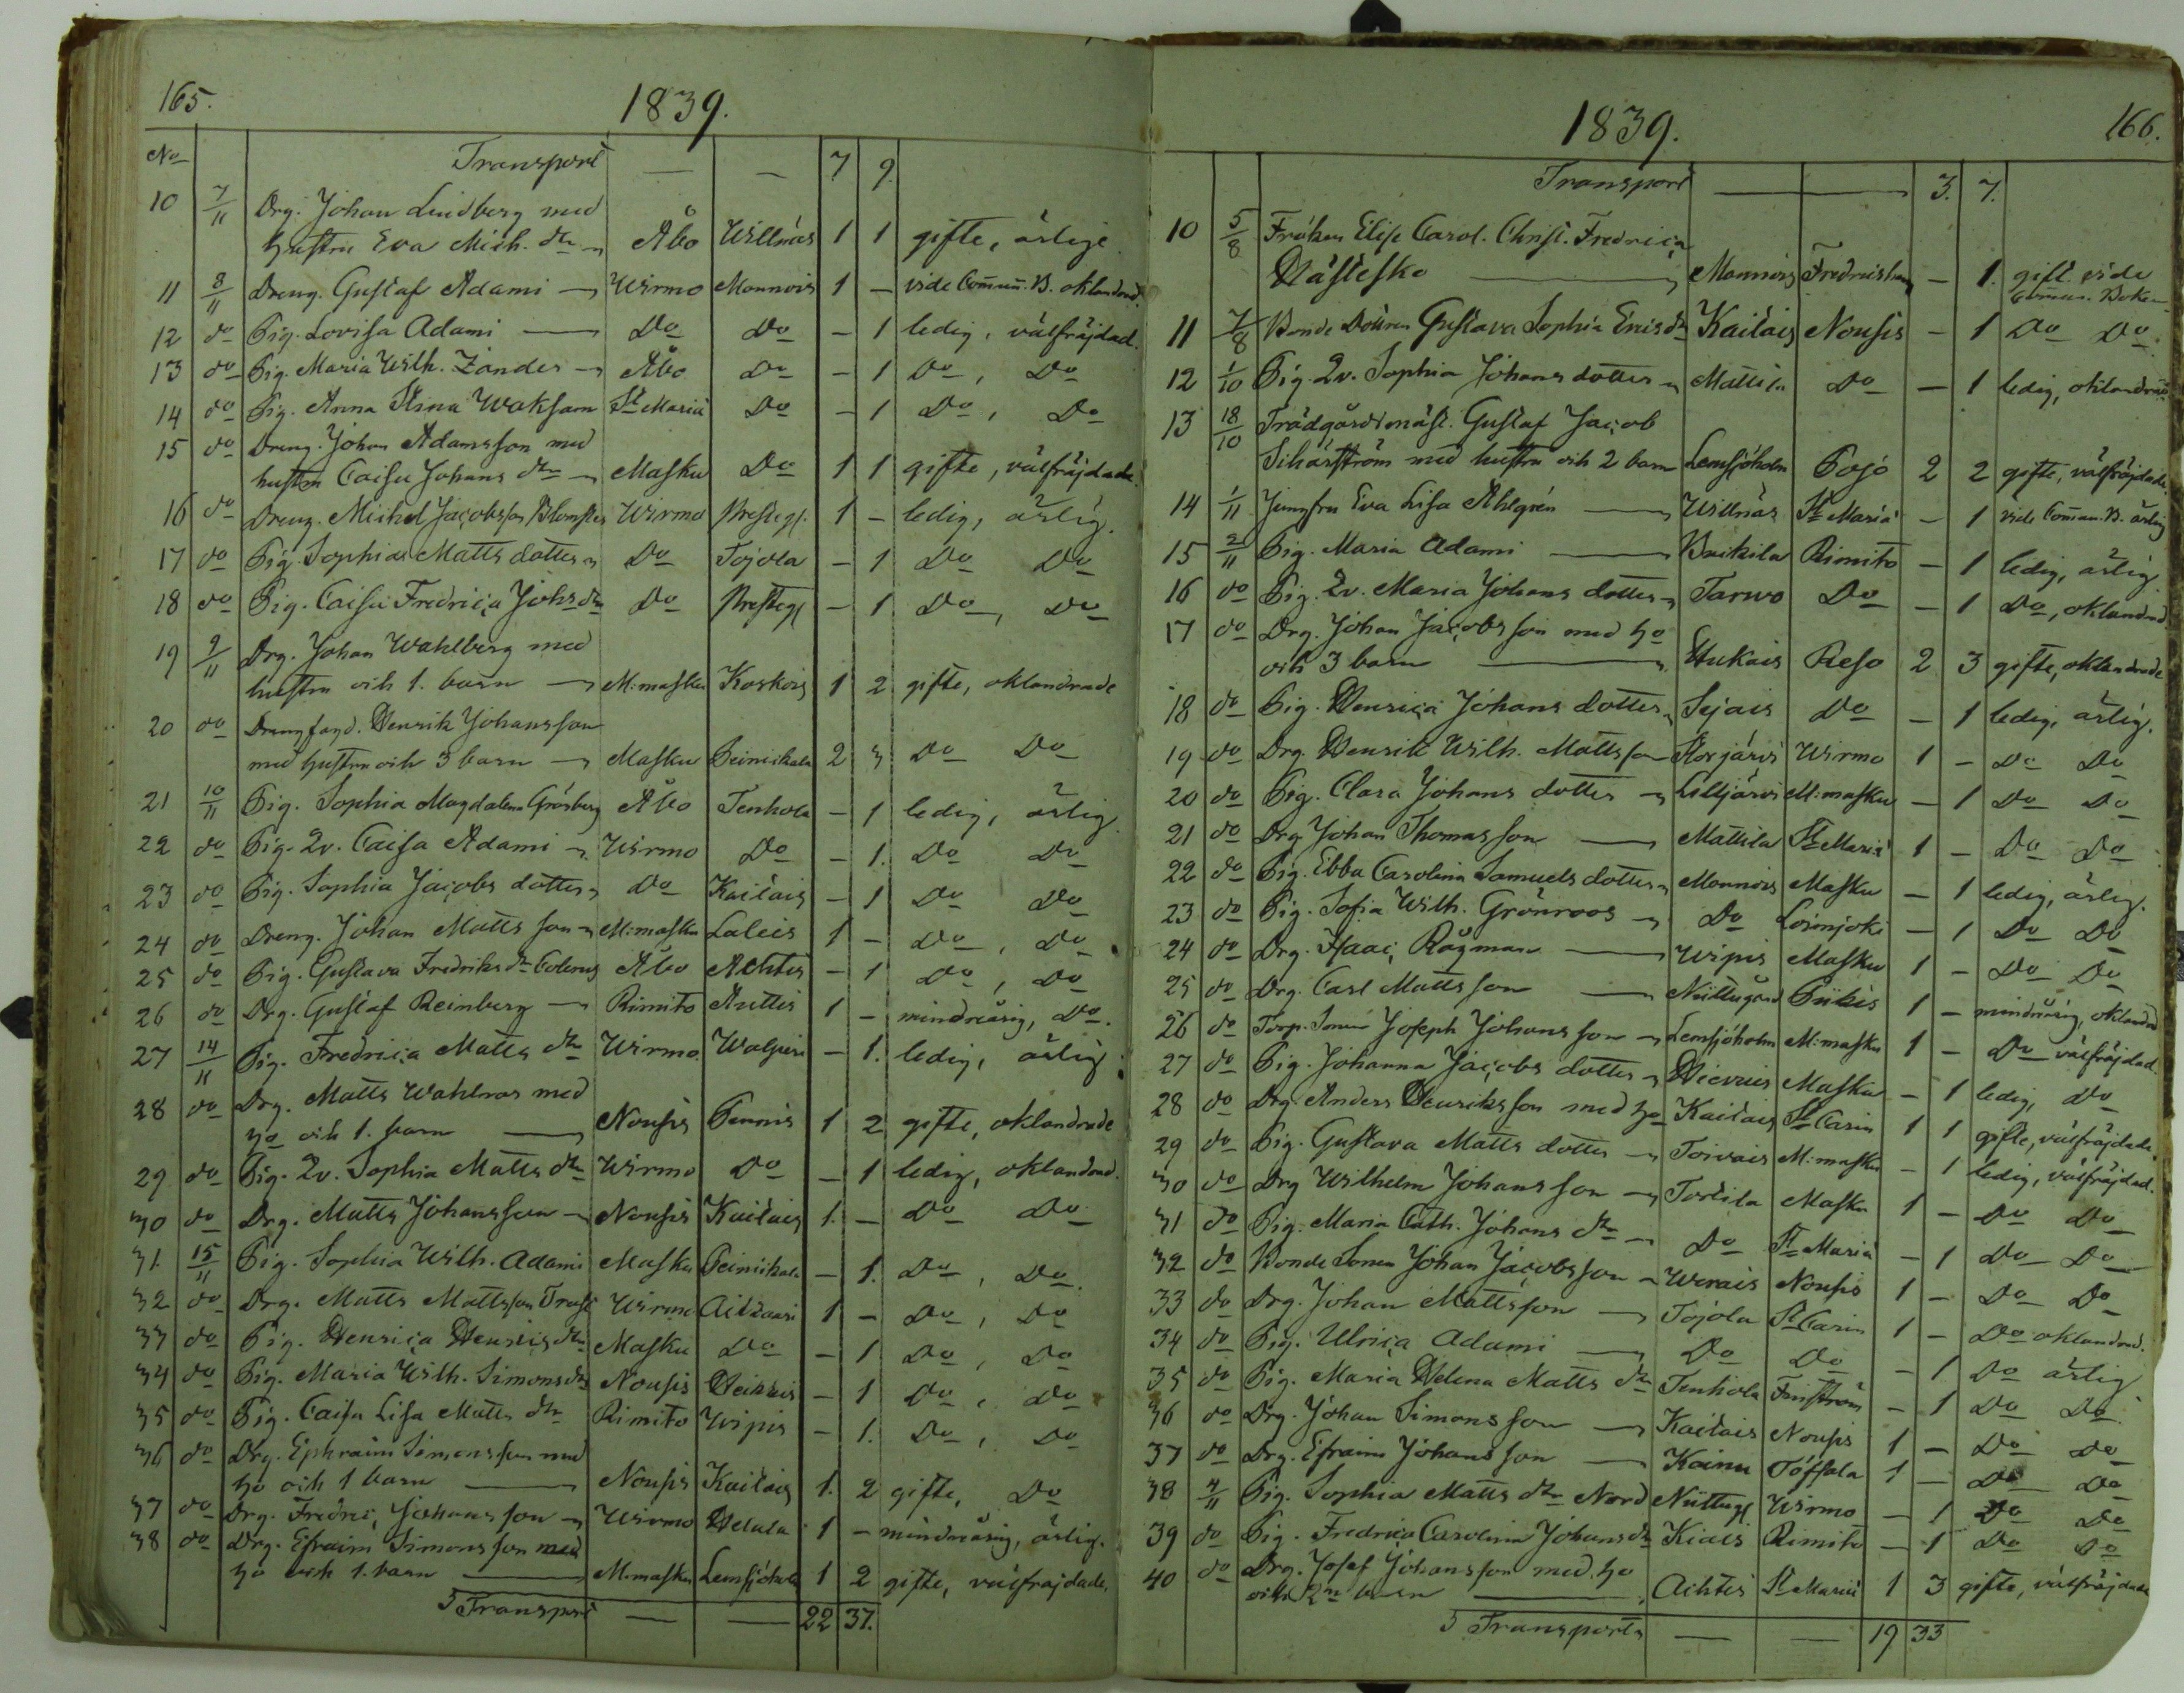 165.
1839.
No Transport — — 7 9
10 7/11 Drg. Johan Lindberg med
hustru Eva Mich. dr Åbo Willnäs 1 1 gifte, ärlige
11 8/11 Dreng. Gustaf Adami Wirmo Monnois 1 — vide Com̄un. B. oklandrad.
12 do Pig. Lovisa Adami Do Do — 1 ledig, välfräjdad.
13 do Pig. Maria Wilh. Zander Åbo Do — 1 Do, Do
14 do Pig. Anna Stina Waksam St Mariæ Do — 1 Do, Do
15 do Dreng. Johan Adamsson med
hustru Caisa Johans dr Masku Do 1 1 gifte, välfräjdade.
16 do Dreng. Michel Jacobsson Wirmo Presteg. 1 — ledig, ärlig.
17 do Pig. Sophia Matts dotter Do Tojola — 1 Do Do
18 do Pig. Caisa Fredrica Johs dr Do Presteg — 1 Do, Do
19 9/11 Drg. Johan Wahlberg med
hustru och 1. barn M:masku Koskois 1 2 gifte, oklandrade
20 do Henrik Johansson
med hustru och 3 barn Masku 2 3 Do Do
21 10/11 Pig. Sophia Magdalena Grönberg Åbo Tenhola — 1 ledig, ärlig.
22 do Pig. 2v. Caisa Adami Wirmo Do — 1. Do Do
23 do Pig. Sophia Jacobs dotter Do Kaitais — 1 Do Do
24 do Dreng. Johan Matts son M:masku Laleis 1 — Do, Do
25 do Pig. Gustava Fredriks dr Åbo Achtis — 1 Do, Do
26 do Drg. Gustaf Reinberg Rimito Anttis 1 — mindreårig, Do.
27 14/11 Pig. Fredrica Matts dr Wirmo. — 1. ledig, ärlig.
28 do Drg. Matts Wahlroos med
Ho och 1. barn Nousis Pennis 1 2 gifte, oklandrade
29 do Pig. 2v. Sophia Matts dr Wirmo Do — 1 ledig, oklandrad.
30 do Drg. Matts Johansson Nousis Kaitais 1. — Do Do
31. 15/11 Pig. Sophia Wilh. Adami Masku — 1. Do, Do.
32 do Drg. Matts Mattsson Wirmo 1 — Do, Do
33 do Pig. Henrica Henrics dr Masku Do — 1 Do, Do
34 do Pig. Maria Wilh. Simons dr Nousis Heikkis — 1 Do, Do
35 do Pig. Caisa Lisa Matts dr Rimito Wipis — 1. Do, Do
36 do Drg. Ephraim Simonsson med
Ho och 1 barn Nousis Kaitais 1. 2 gifte, Do
37 do Drg. Fredric Johansson Wirmo 1 — mindreårig, ärlig.
38 do Drg. Efraim Simonsson med
Ho och 1. barn M:masku Lemsjöholm 1 2 gifte, välfräjdade.
Transport — — 22 37.
1839.
166.
Transport — — 3. 7.
10 5/8 Fröken Elise Carol. Christ. Fredrica
Hästesko Monnois — 1. gift. vide
Com̄un. Boken
11 7/8 Bonde Dottren Gustava Sophia Erics dr Kaitais Nousis — 1 Do Do.
12 1/10 Pig. 2v. Sophia Johans dotter Mattila Do — 1 ledig, oklandrad
13 18/10 Trädgårdsmäst. Gustaf Jacob
med hustru och 2 barn Lemsjöholm Pojo 2 2 gifte, välfräjdade.
14 1/11 Jungfru Eva Lisa Ahlgrén Willnäs St Mariæ — 1 vide Com̄un. B. ärlig
15 2/11 Pig. Maria Adami Rimito — 1 ledig, ärlig
16 do Pig. 2v. Maria Johans dotter Tarwo Do — 1 Do, oklandrad
17 do Drg. Johan Jacobsson med Ho
och 3 barn Reso 2 3 gifte, oklandrade
18 do Pig. Henrica Johans dotter Sejais Do — 1 ledig, ärlig.
19 do Drg. Henrik Wilh. Mattsson Storjärvi Wirmo 1 — Do Do
20 do Pig. Clara Johans dotter Lilljärvi M:masku — 1 Do Do
21 do Drg Johan Thomasson Mattila St Mariæ 1 — Do Do
22 do Pig. Ebba Carolina Samuels dotter Monnois Masku — 1 ledig, ärlig.
23 do Pig. Sofia Wilh. Grönroos Do Loimjoki — 1 Do Do
24 do Drg. Isaac Rågman Wipis Masku 1 — Do Do
25 do Drg. Carl Mattsson Niittugård Piikis 1 — mindreårig, oklandrad
26 do Torp. Sonen Joseph Johansson Lemsjöholm M:masku 1 — Do välfräjdad.
27 do Pig. Johanna Jacobs dotter Masku — 1 ledig, Do
28 do Drg. Anders Henriksson med Ho Kaitais St Carin 1 1 gifte, välfräjdade.
29 do Pig. Gustava Matts dotter Toivais M:masku — 1 ledig, välfräjdad.
30 do Drg Wilhelm Johansson Tortila Masku 1 — Do Do
31 do Pig. Maria Cath. Johans dr Do St Mariæ — 1 Do Do
32 do Bonde Sonen Johan Jacobsson Werais Nousis 1 — Do Do
33 do Drg. Johan Mattsson Tojola St Carin 1 — Do oklandrad.
34 do Pig. Ulrica Adami Do Do — 1 Do ärlig
35 do Pig. Maria Helena Matts dr Tenhola Finström — 1 Do Do.
36 do Drg. Johan Simonsson Kaitais Nousis 1 — Do Do
37 do Drg. Efraim Johansson Kainu Töffsala 1 — Do Do
38 4/11 Pig. Sophia Matts dr Nord Niittug Wirmo — 1 Do Do
39 do Pig. Fredrica Carolina Johans dr Kiais Rimito — 1 Do Do
40 do Drg. Josef Johansson med Ho
och 2ne barn Achtis St Mariæ 1 3 gifte, välfräjdade
Transport — — 19 33